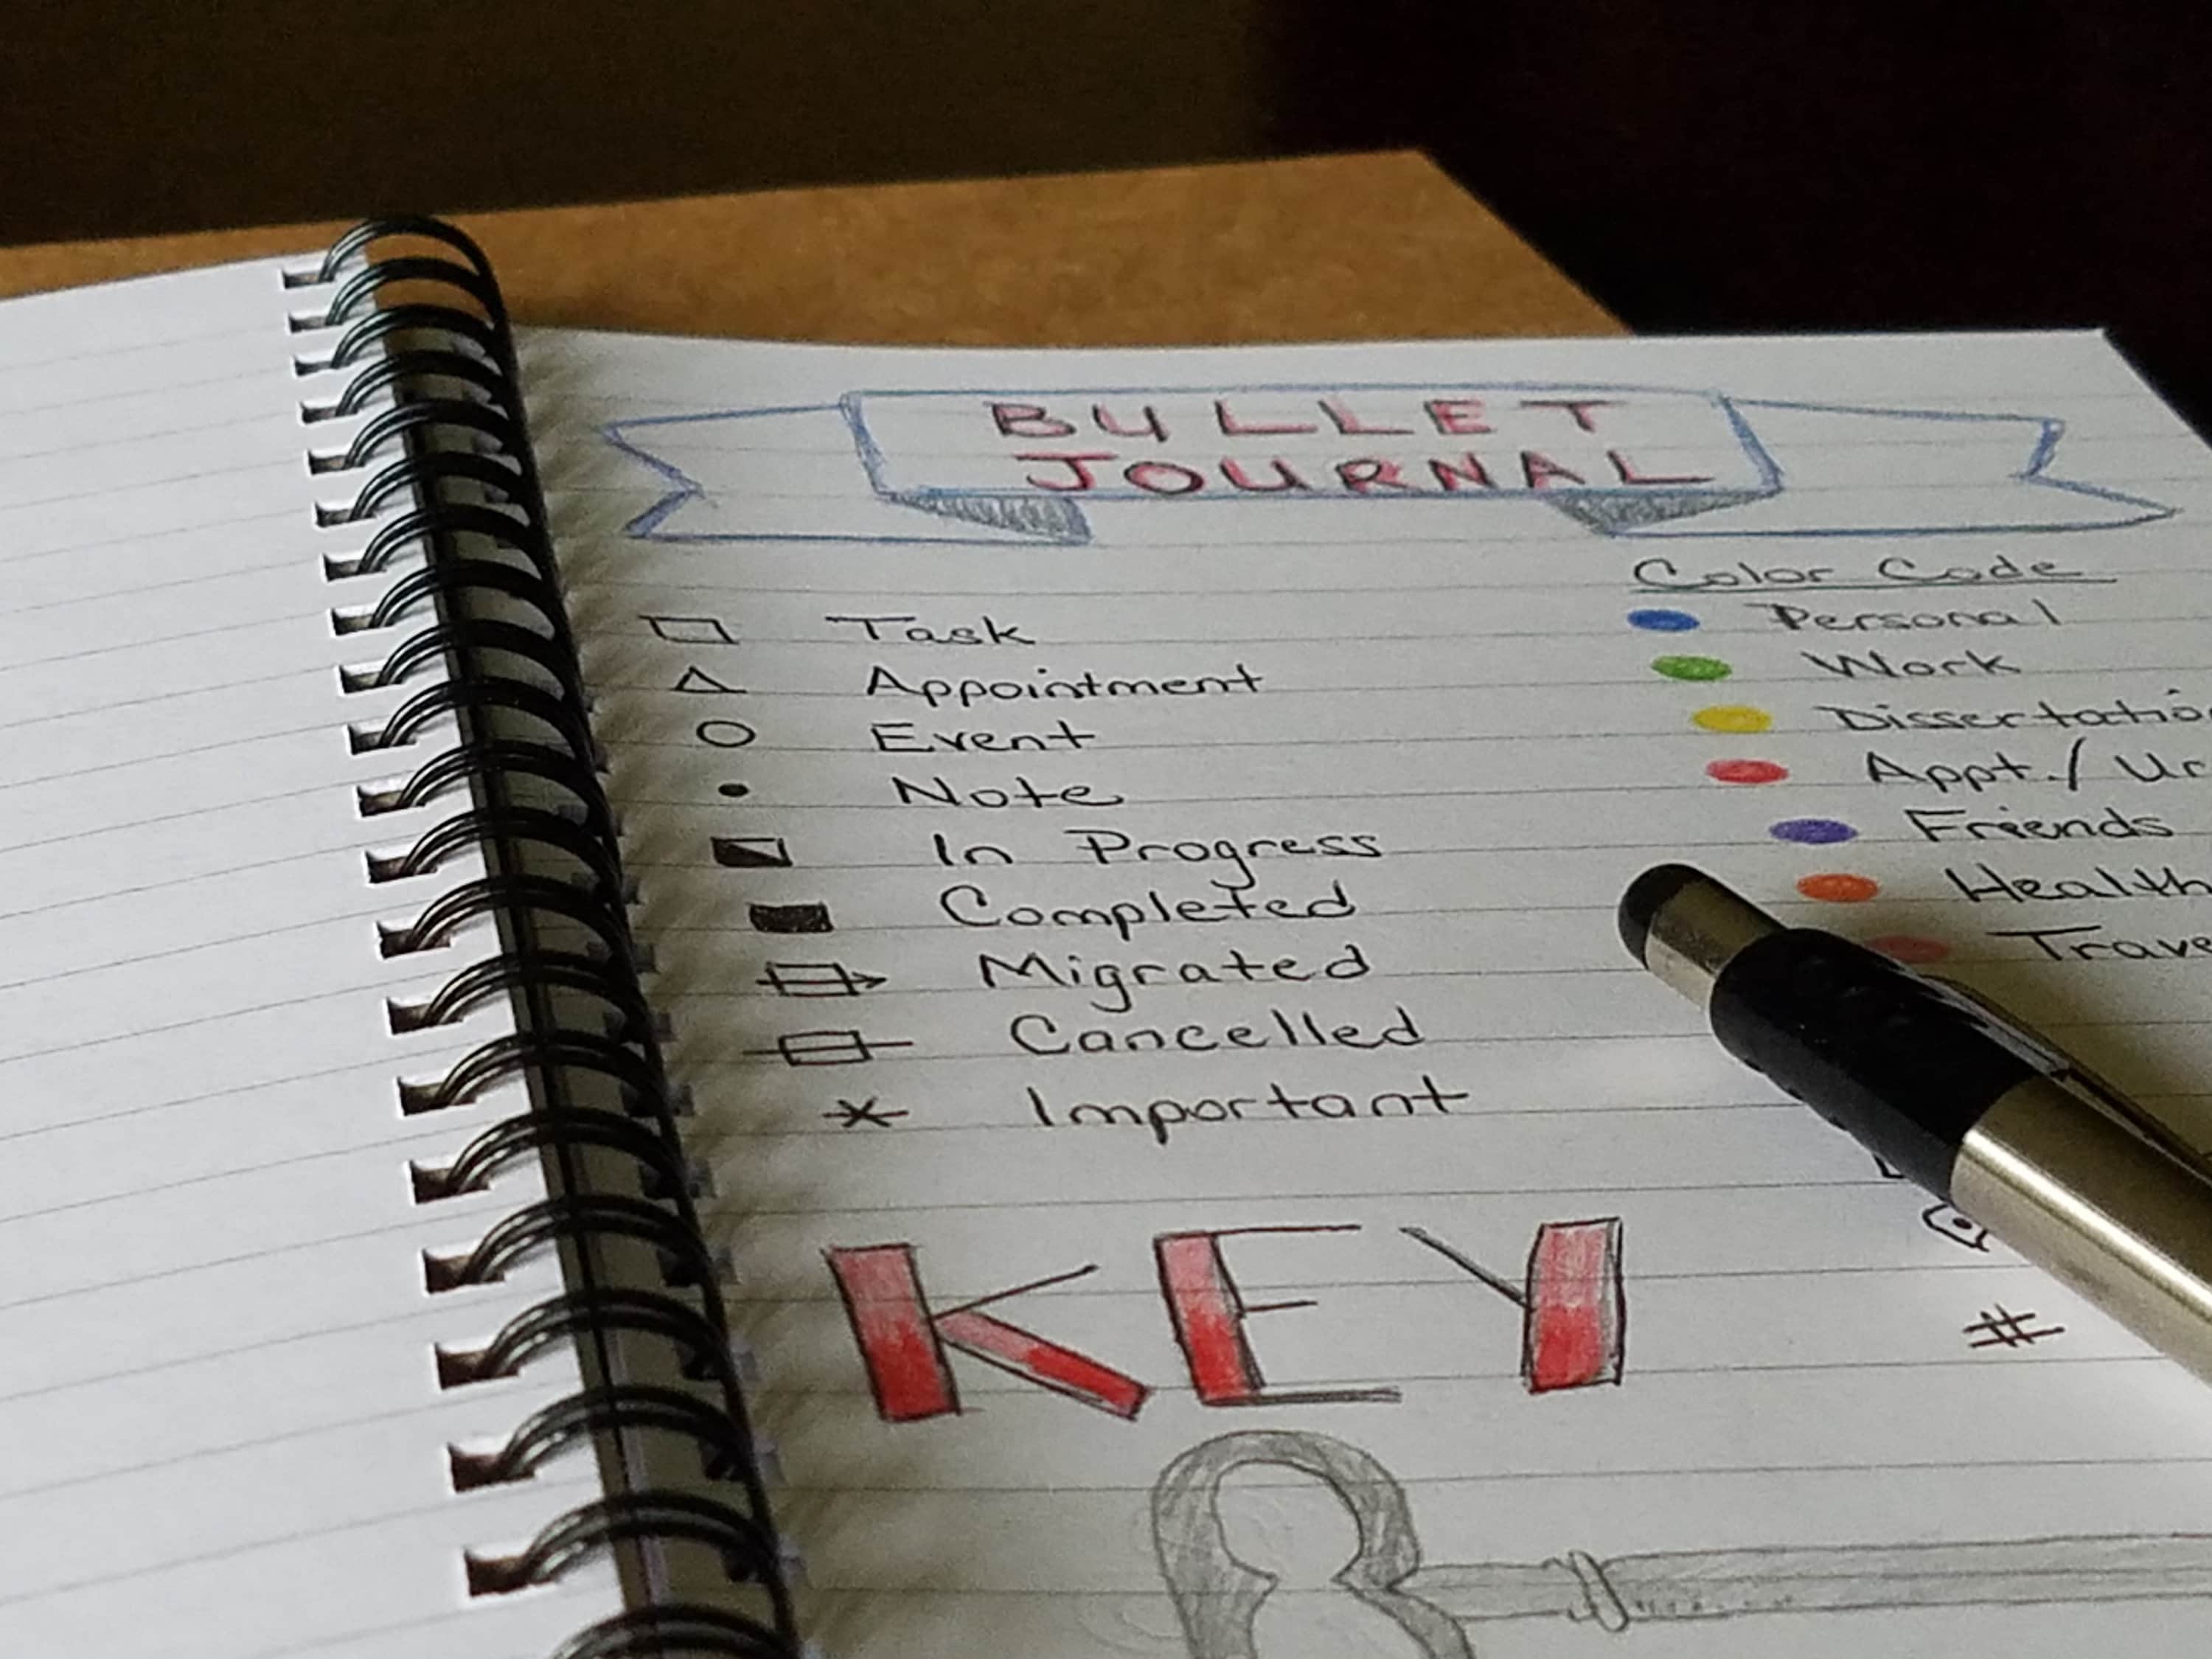 BULLET
JOURNAL
Task
Appointment
Event
Note
In Progress
Completed
Migrated
Cancelled
Important
Color Code
Personal
Work
Dissertatio
Appt./Ur
Friends
Health
Trave
#
KEY